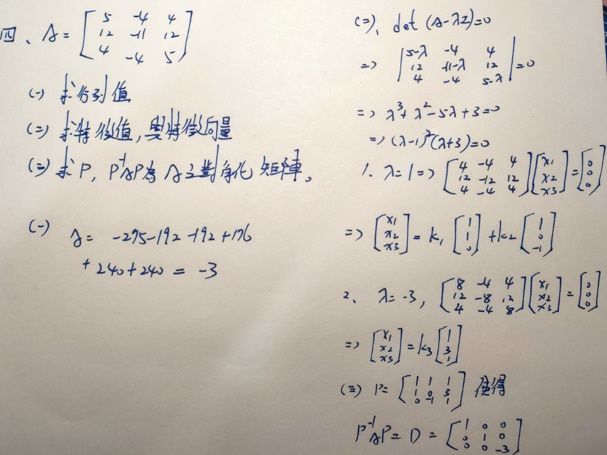 四、A = [5 -4 4; 12 -11 12; 4 -4 5]
(一) 求行列值
(二) 求特徵值,與特徵向量
(三) 求P, P⁻¹AP為A之對角化矩陣。
(一) A = -275-192-192+176
+240+240 = -3
(二)、det(A-λI)=0
=> |5-λ -4 4; 12 -11-λ 12; 4 -4 5-λ| =0
=> λ³+λ²-5λ+3=0
=> (λ-1)²(λ+3)=0
1. λ=1 => [4 -4 4; 12 -12 12; 4 -4 4] [x1; x2; x3] = [0; 0; 0]
=> [x1; x2; x3] = k1 [1; 1; 0] + k2 [1; 0; -1]
2. λ=-3, [8 -4 4; 12 -8 12; 4 -4 8] [x1; x2; x3] = [0; 0; 0]
=> [x1; x2; x3] = k3 [1; 3; 1]
(三) P= [1 1 1; 1 0 3; 0 -1 1] 使得
P⁻¹AP = D = [1 0 0; 0 1 0; 0 0 -3]